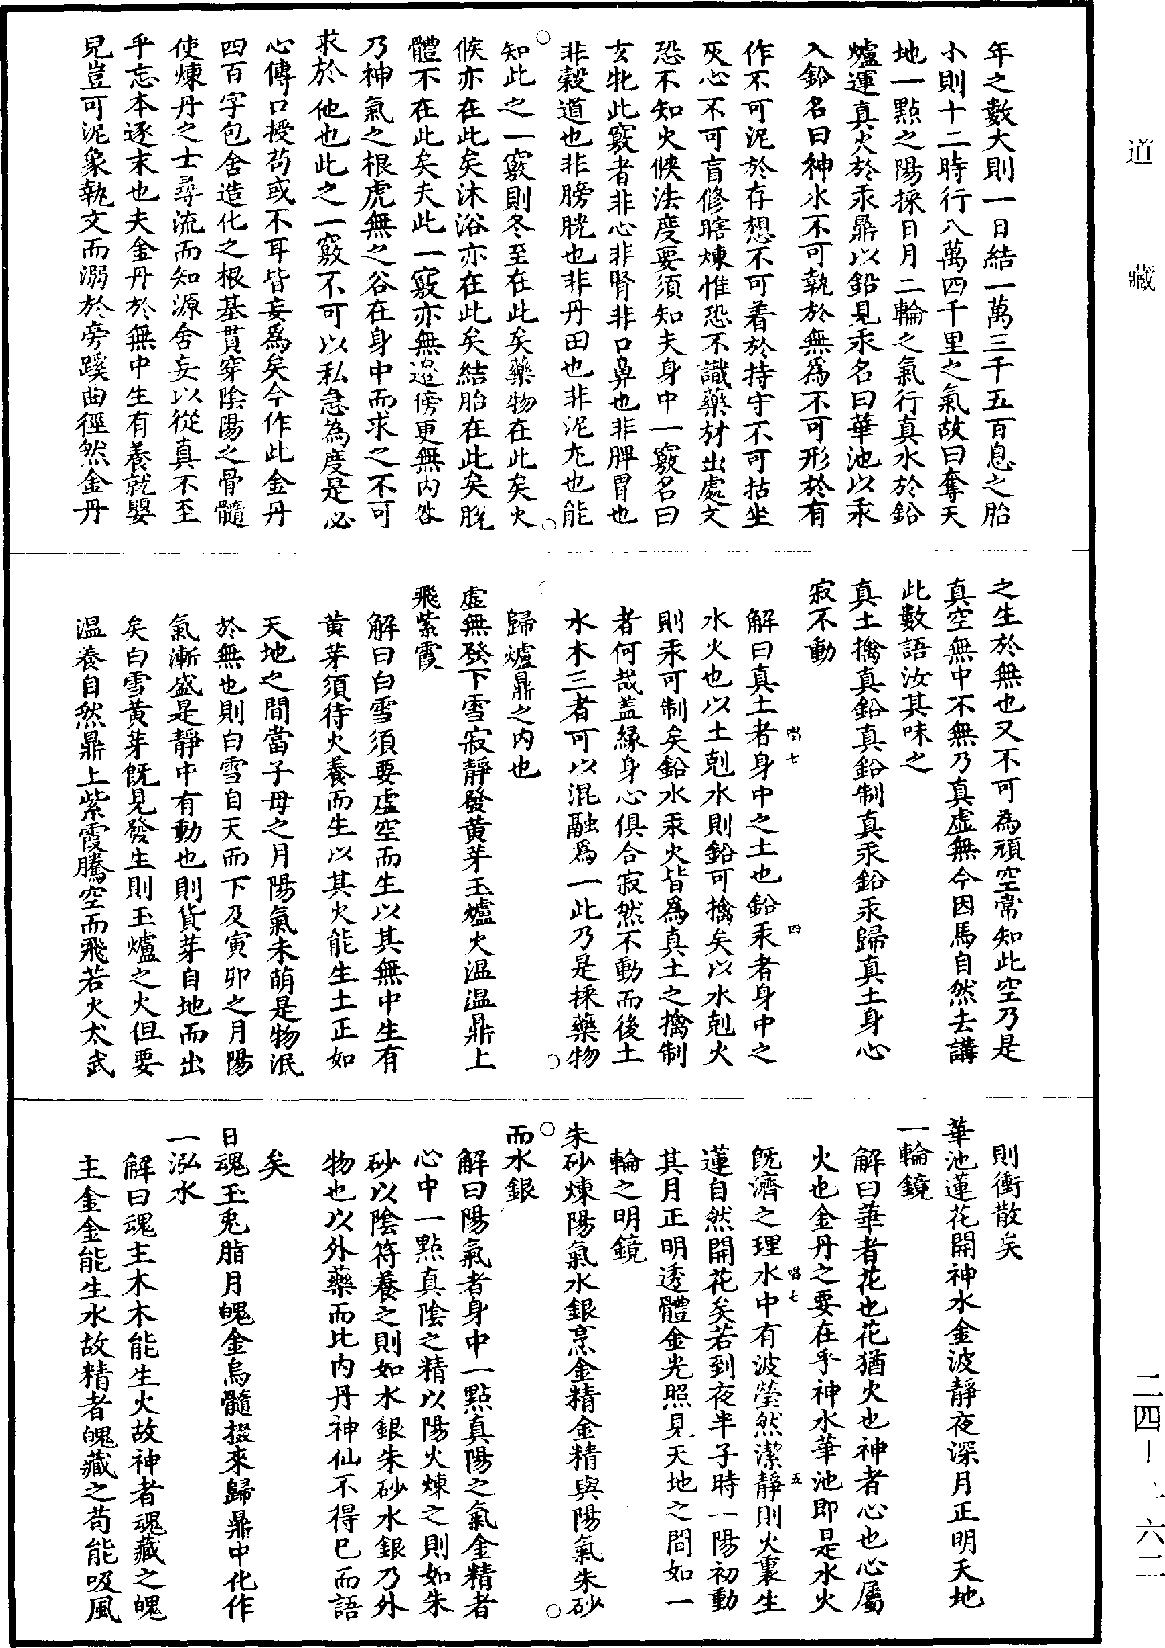 年之數大則一日結一萬三千五百息之胎
小則十二時行八萬四千里之氣故曰奪天
地一點之陽採日月二輪之氣行真水於鉛
爐運真火於汞鼎以鉛見汞名曰華池以汞
入鉛名曰神水不可執於無為不可形於有
作不可泥於存想不可着於持守不可枯坐
灰心不可盲修瞎煉惟恐不識藥材出處又
恐不知火候法度要須知夫身中一竅名曰
玄牝此竅者非心非腎非口鼻也非脾胃也
非穀道也非膀胱也非丹田也非泥丸也能
知此之一竅則冬至在此矣藥物在此矣火
候亦在此矣沐浴亦在此矣結胎在此矣脫
體不在此矣夫此一竅亦無邊傍更無內外
乃神氣之根虎無之谷在身中而求之不可
求於他也此之一竅不可以私意為度是必
心傳口授苟或不耳皆妄為矣今作此金丹
四百字包含造化之根基貫穿陰陽之骨髓
使煉丹之士尋流而知源舍妄以從真不至
乎忘本逐末也夫金丹於無中生有養就嬰
兒豈可泥象執文而溺於旁蹊曲徑然金丹
之生於無也又不可為頑空常知此空乃是
真空無中不無乃真虛無今因馬自然去講
此數語汝其味之
真土擒真鉛真鉛制真汞鉛汞歸真土身心
寂不動
解曰真土者身中之土也鉛汞者身中之
水火也以土剋水則鉛可擒矣以水剋火
則汞可制矣鉛水汞火皆為真土之擒制
者何哉蓋緣身心俱合寂然不動而後土
水木三者可以混融為一此乃是採藥物
歸爐鼎之內也
虛無發下雪寂靜發黃芽玉爐火溫溫鼎上
飛紫霞
解曰白雪須要虛空而生以其無中生有
黃芽須待火養而生以其火能生土正如
天地之間當子母之月陽氣未萌是物泯
於無也則白雪自天而下及寅卯之月陽
氣漸盛是靜中有動也則貨芽自地而出
矣白雪黃芽既見發生則玉爐之火但要
溫養自然鼎上紫霞騰空而飛若火太武
則衝散矣
華池蓮花開神水金波靜夜深月正明天地
一輪鏡
解曰華者花也花猶火也神者心也心屬
火也金丹之要在乎神水華池即是水火
既濟之理水中有波瑩然潔靜則火裏生
蓮自然開花矣若到夜半子時一陽初動
其月正明透體金光照見天地之間如一
輪之明鏡
朱砂煉陽氣水銀烹金精金精與陽氣朱砂
而水銀
解曰陽氣者身中一點真陽之氣金精者
心中一點真陰之精以陽火煉之則如朱
砂以陰符養之則如水銀朱砂水銀乃外
物也以外藥而比內丹神仙不得已而語
矣
日魂玉兎脂月魄金烏髓掇來歸鼎中化作
一泓水
解曰魂主木木能生火故神者魂藏之魄
主金金能生水故精者魄藏之苟能吸風
道藏
唱七
四
唱七
五